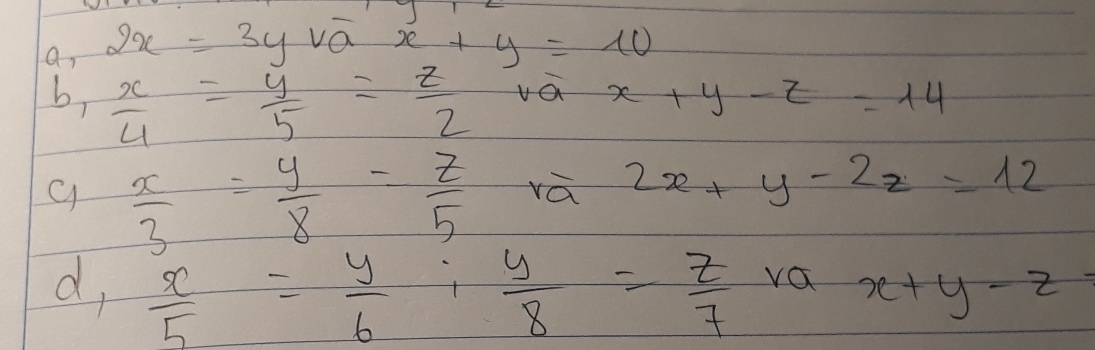 a, 2x = 3y và x + y = 10
b, x/4 = y/5 = z/2 và x + y - z = 14
c, x/3 = y/8 = z/5 và 2x + y - 2z = 12
d, x/5 = y/6 ; y/8 = z/7 và x + y - z =